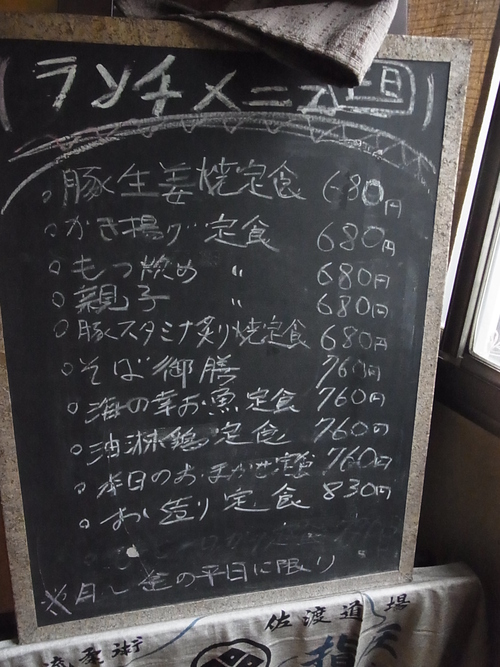 ランチメニュー
豚生姜焼定食 680円
かき揚げ定食 680円
もつ炒め 〃 680円
親子 〃 680円
豚スタミナ炙り焼定食 680円
そば御膳 760円
海の幸お魚定食 760円
油淋鶏定食 760円
本日のおまかせ定食 760円
お造り定食 830円
※月〜金の平日に限り
佐渡道場